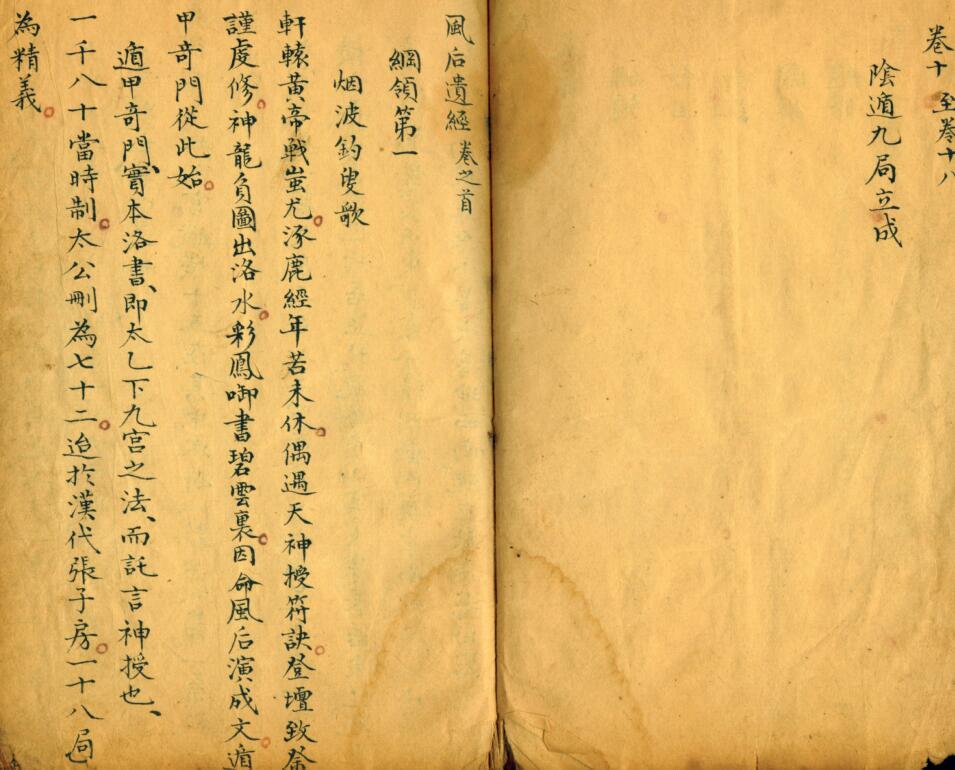 卷十 至卷十八
陰遁九局立成
風后遺經 卷之首
綱領第一
烟波釣叟歌
軒轅黃帝戰蚩尤涿鹿經年苦未休偶遇天神授符訣登壇致祭
謹虔修神龍負圖出洛水彩鳳啣書碧雲裏因命風后演成文遁
甲奇門從此始
遁甲奇門、實本洛書、即太乙下九宮之法、而託言神授也、
一千八十當時制太公刪為七十二迨於漢代張子房一十八局
為精義